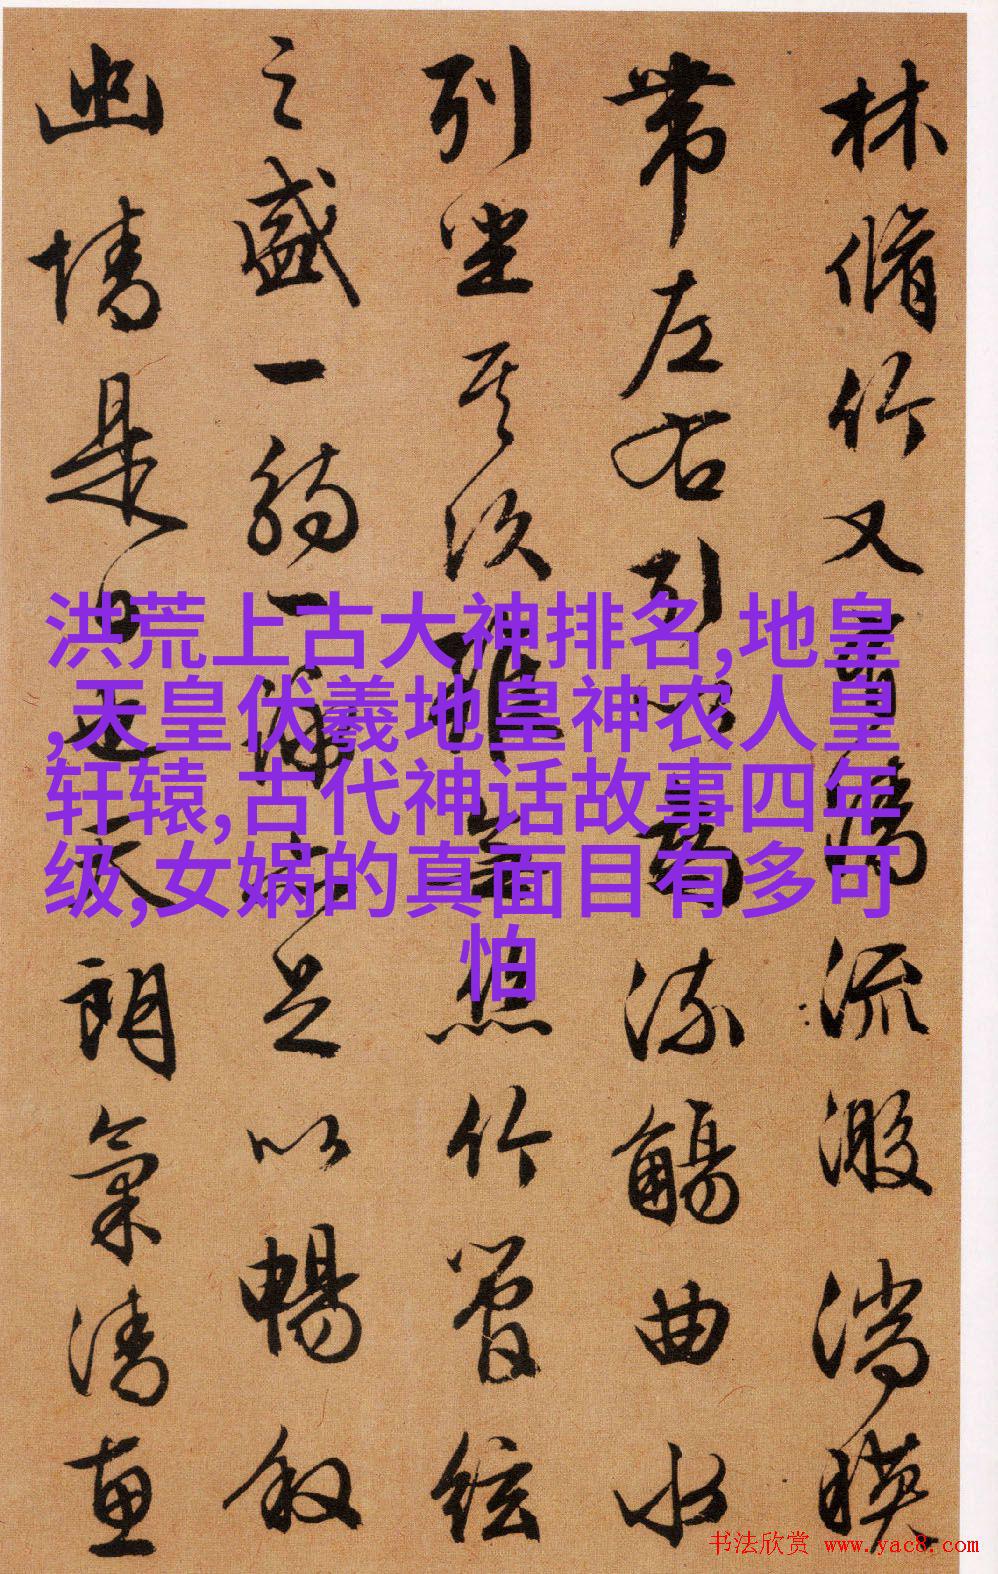 林脩竹又有清流激湍暎
帶左右引以為流觴曲水
列坐其次雖無絲竹管絃
之盛一觴一詠亦足以暢叙
幽情是日也天朗氣清惠
洪荒上古大神排名,地皇
,天皇伏羲地皇神农人皇
轩辕,古代神话故事四年
级,女娲的真面目有多可
怕
书法欣赏 www.yac8.com